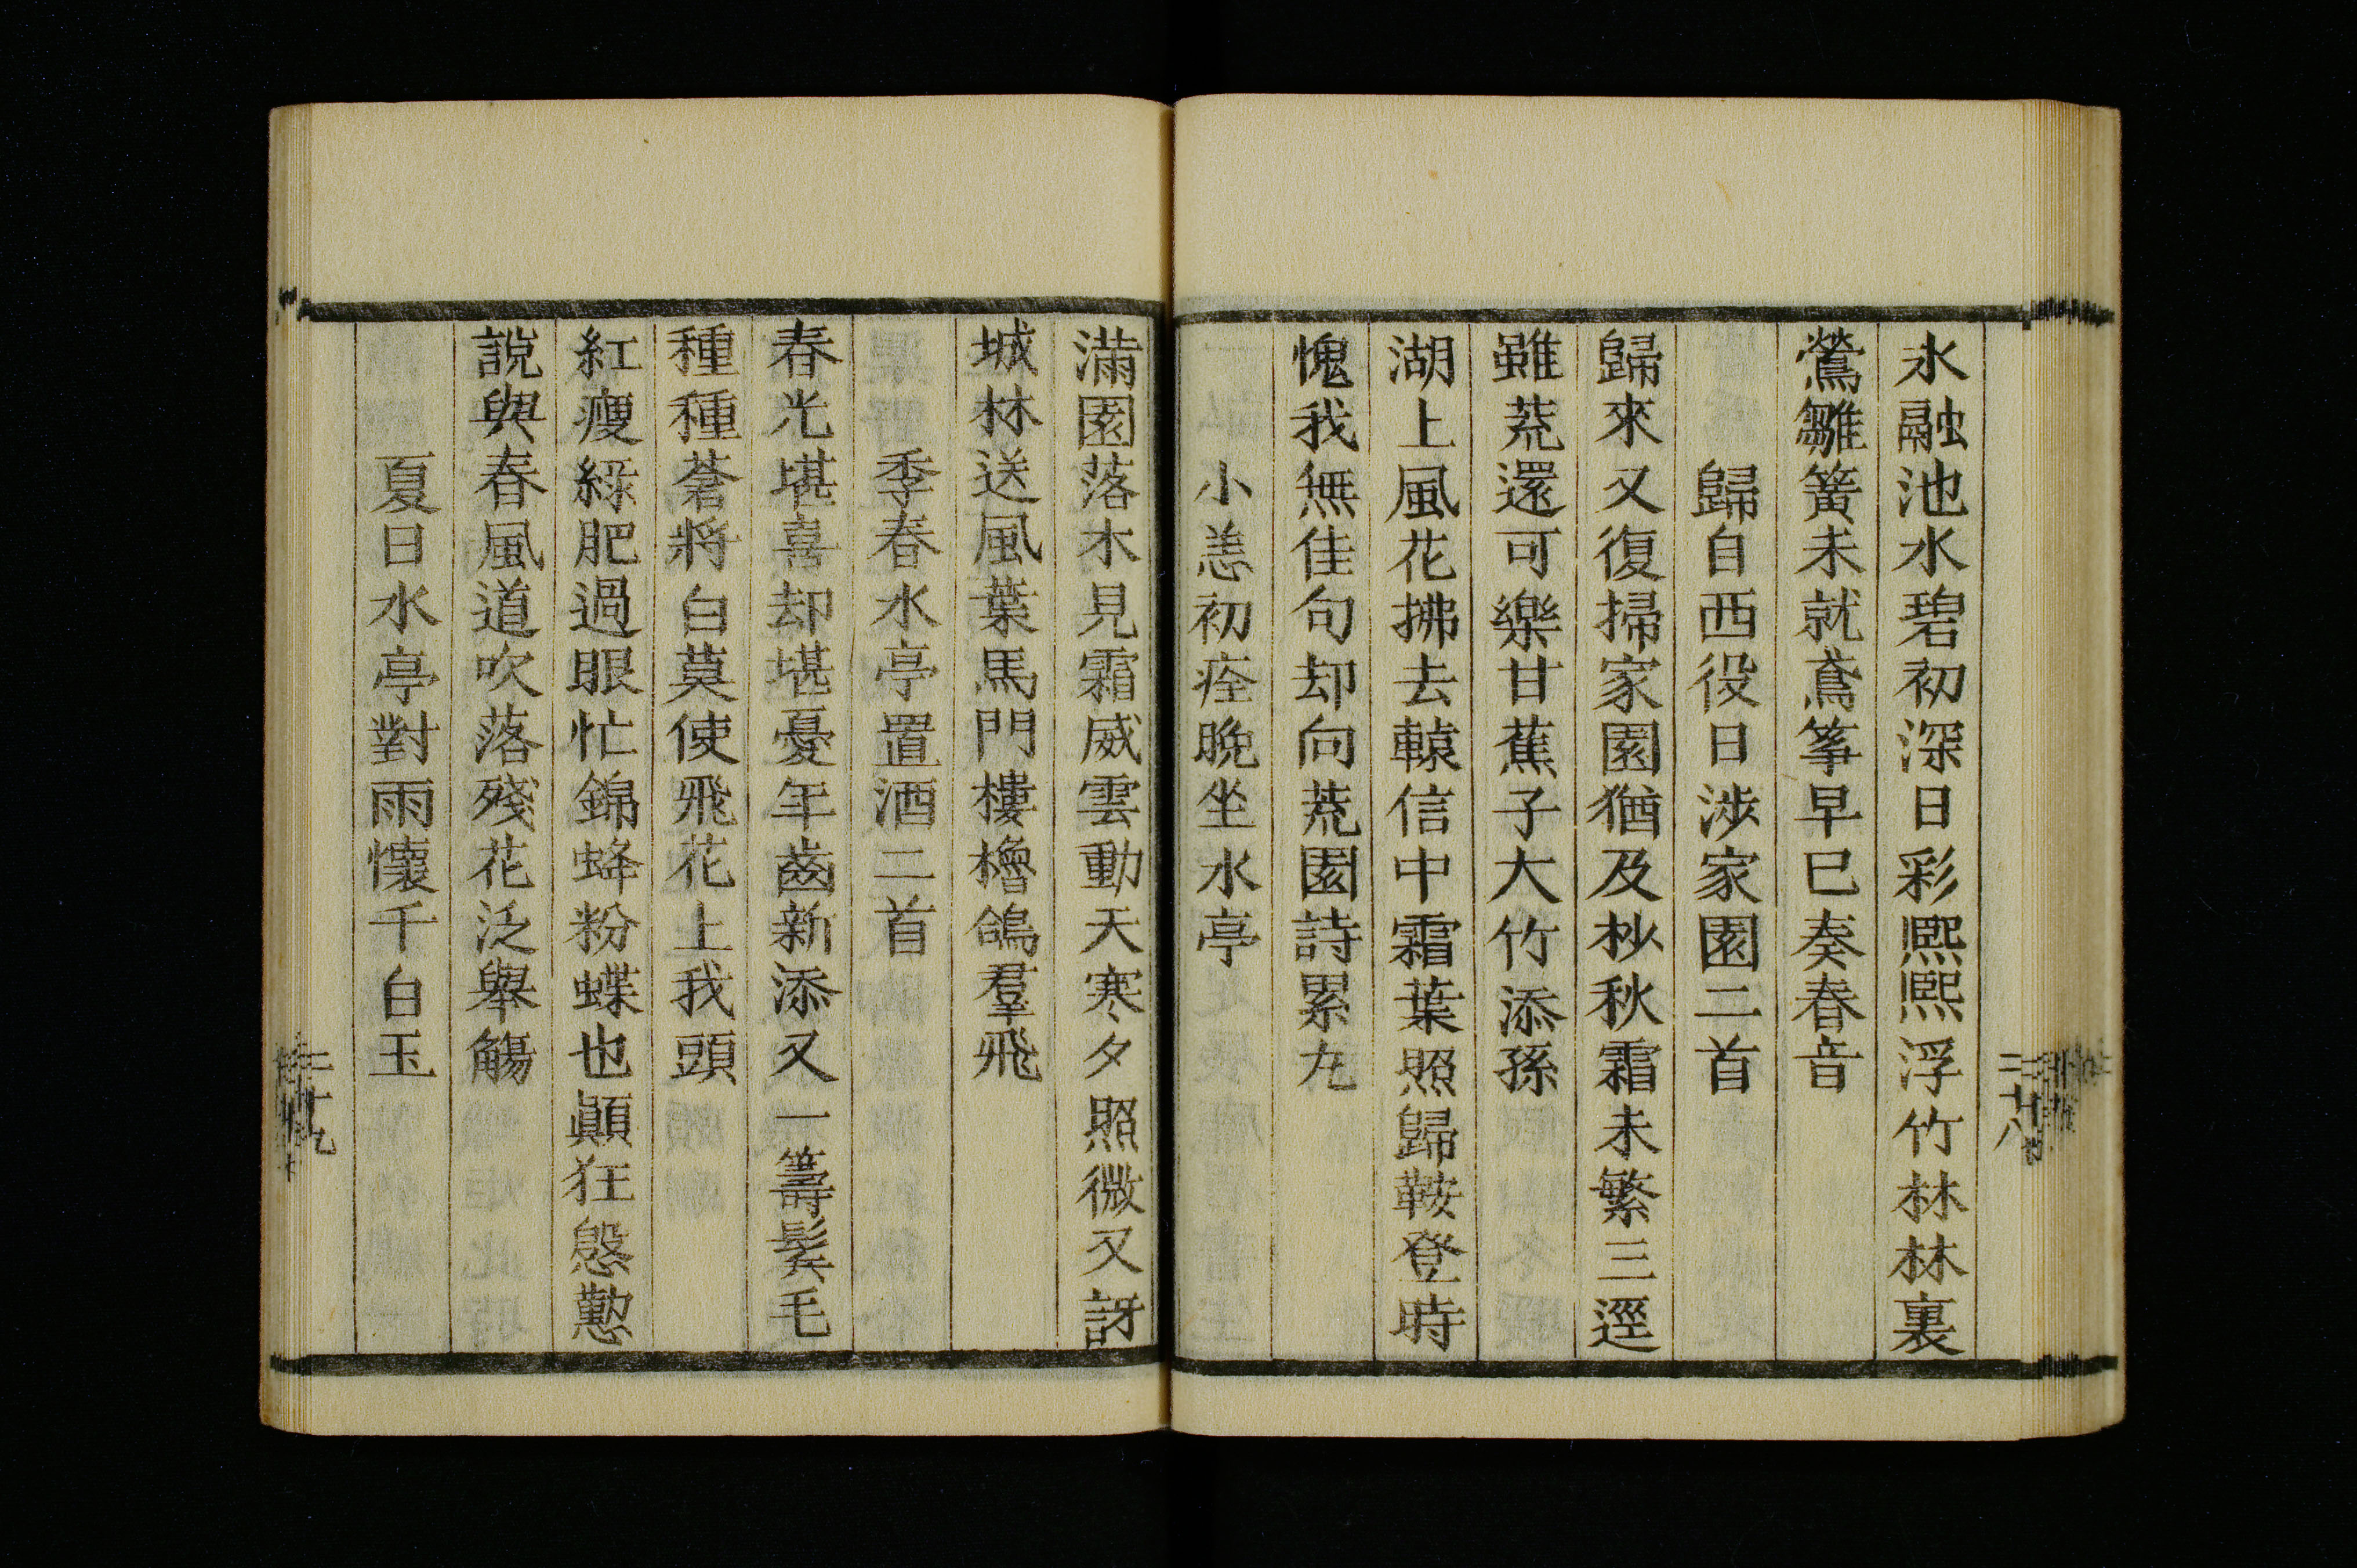 氷融池水碧初深日彩熈熈浮竹林林裏
鶯雛簧未就鳶筝早巳奏春音
歸自西役日渉家園二首
歸來又復掃家園猶及杪秋霜未繁三逕
雖荒還可樂甘蕉子大竹添孫
湖上風花拂去轅信中霜葉照歸鞍登時
愧我無佳句却向荒園詩累九
小恙初痊晩坐水亭
二十八
滿園落木見霜威雲動天寒夕照微又訝
城林送風葉馬門樓櫓鴿羣飛
季春水亭置酒二首
春光堪喜却堪憂年齒新添又一籌鬂毛
種種蒼將白莫使飛花上我頭
紅瘦綠肥過眼忙錦蜂粉蝶也顚狂慇懃
說與春風道吹落殘花泛舉觴
夏日水亭對雨懷千白玉
二十九